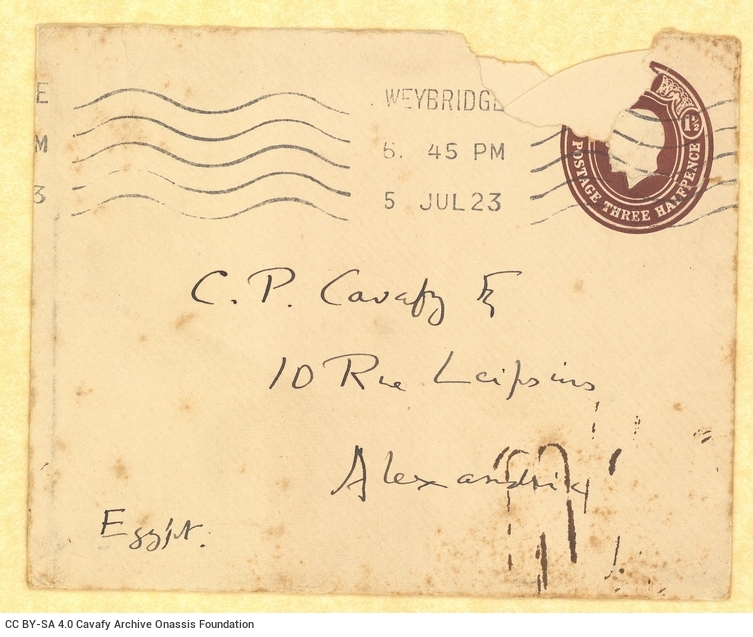 E
M
3
WEYBRIDGE
6. 45 PM
5 JUL 23
1½
POSTAGE THREE HALFPENCE
C. P. Cavafy Esq
10 Rue Lepsius
Alexandria
Egypt.
CC BY-SA 4.0 Cavafy Archive Onassis Foundation